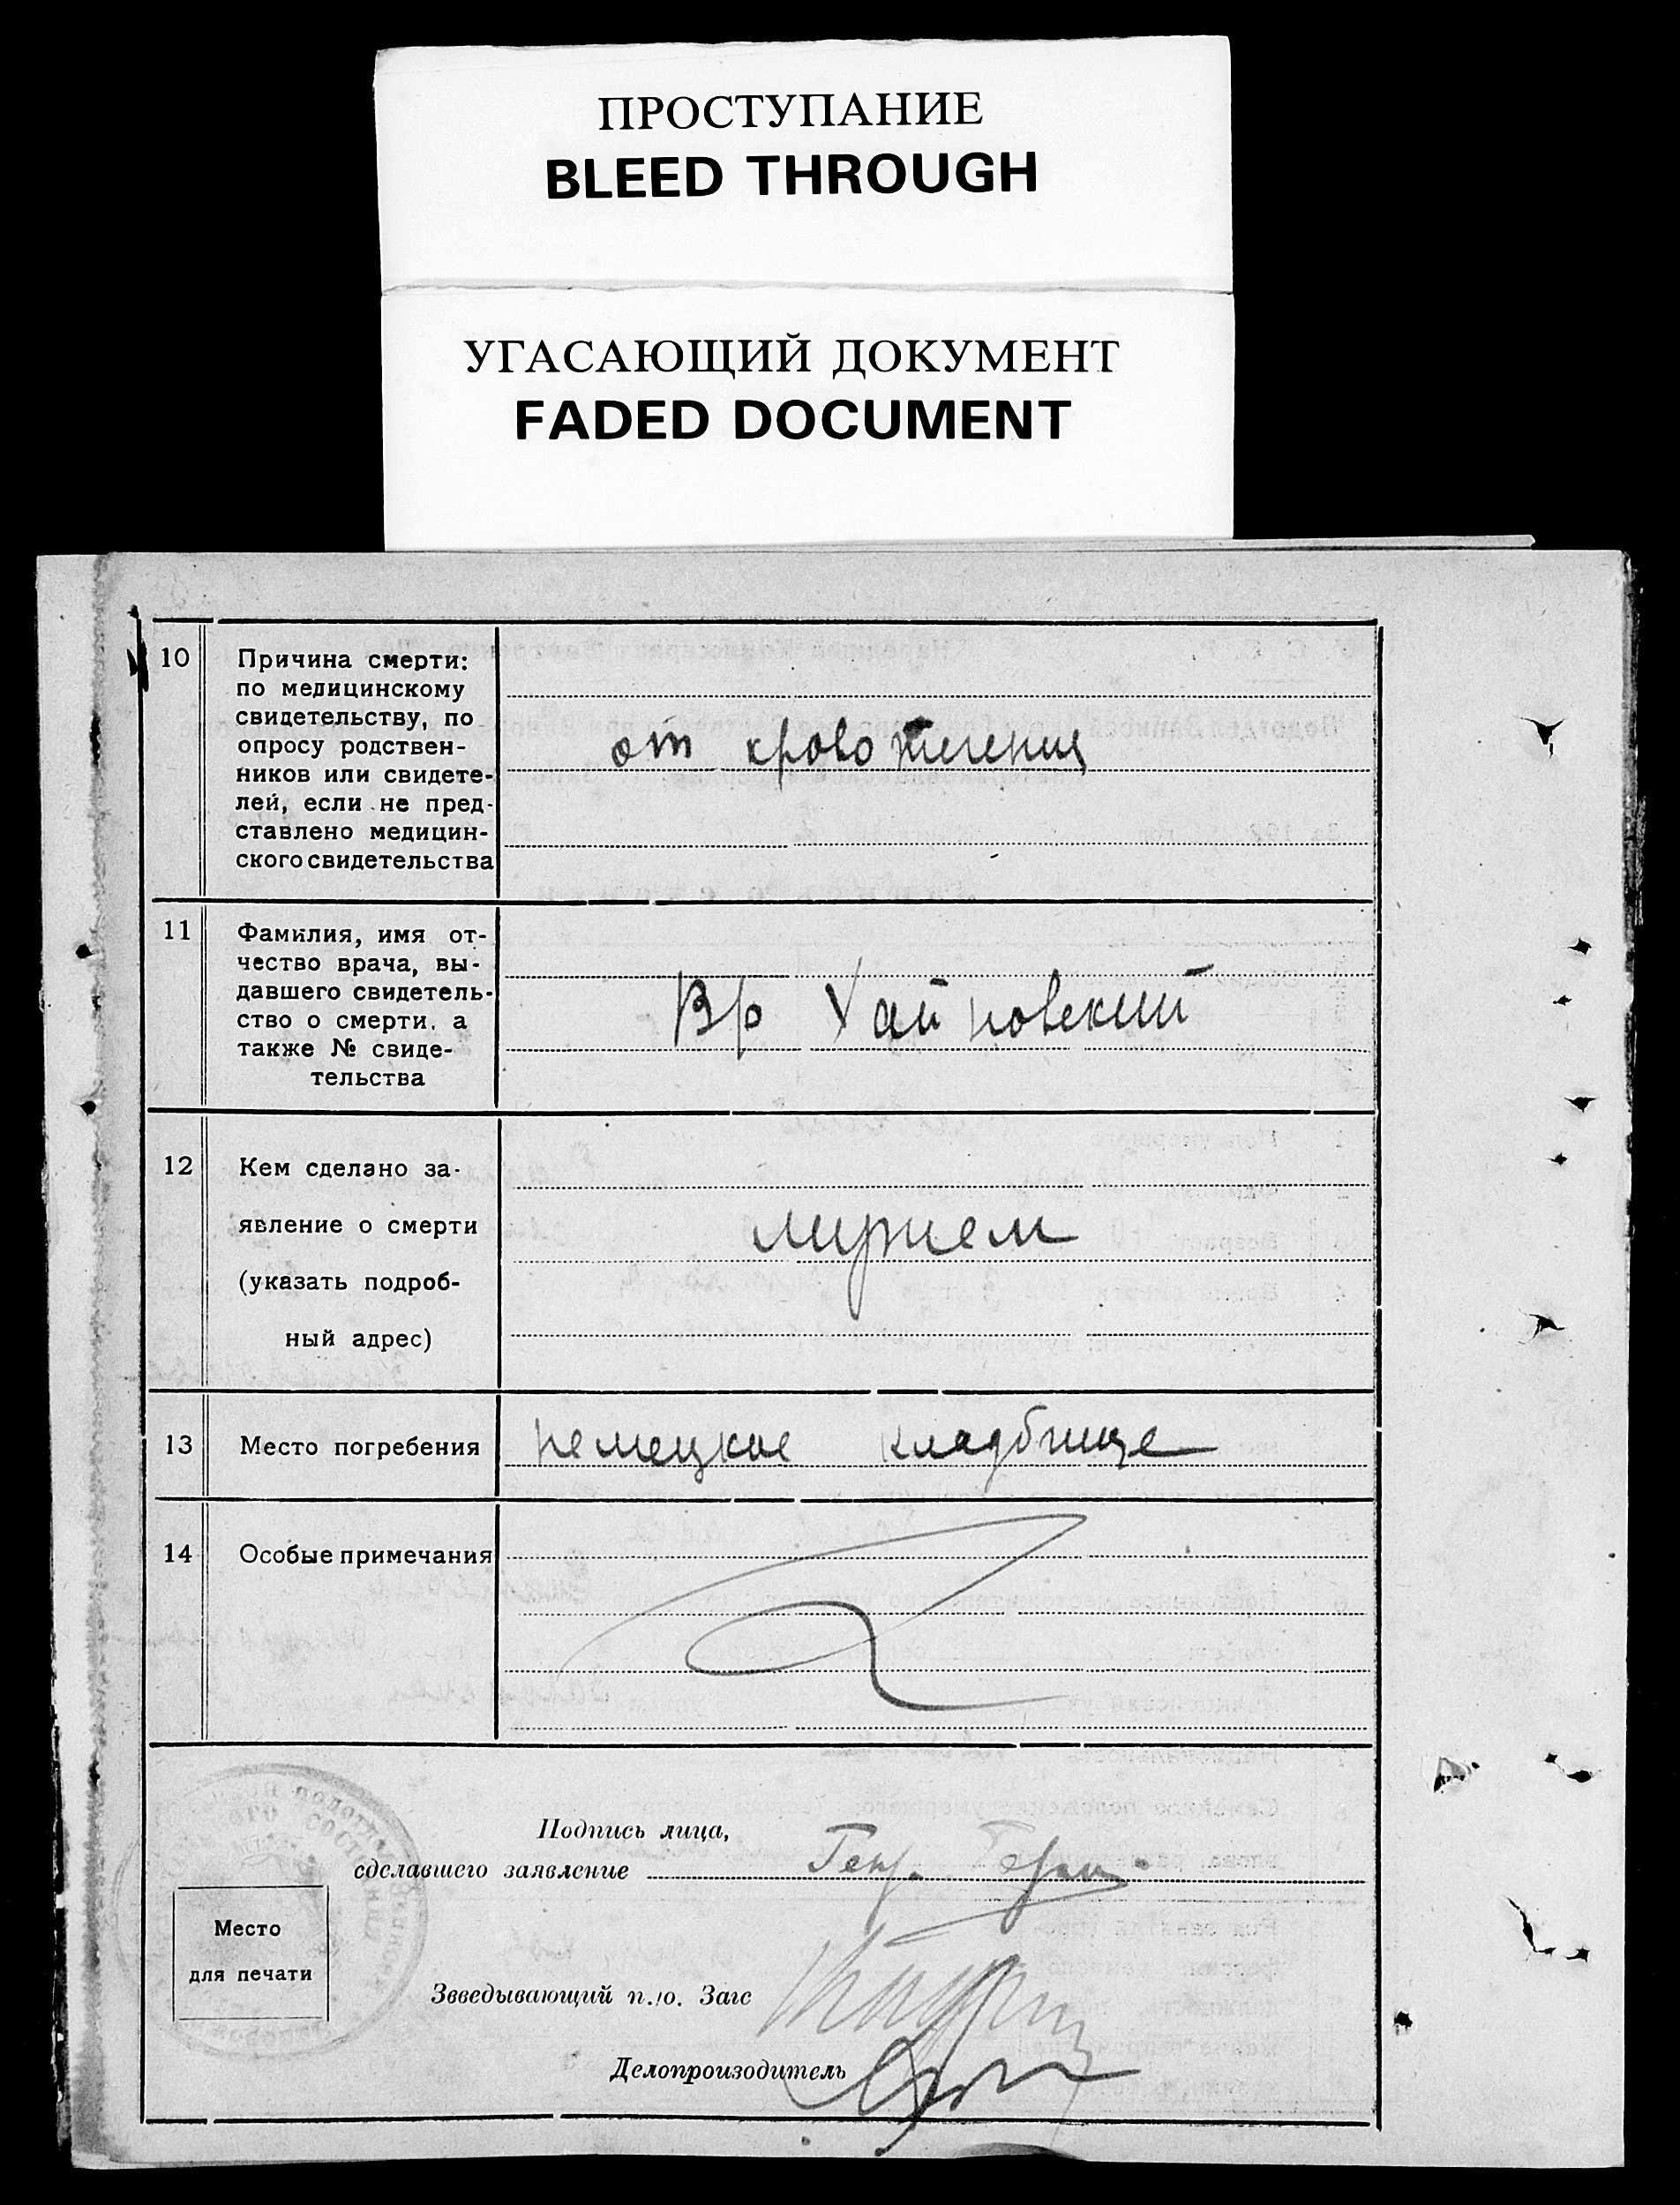 ПРОСТУПАНИЕ
BLEED THROUGH
УГАСАЮЩИЙ ДОКУМЕНТ
FADED DOCUMENT
10
Причина смерти:
по медицинскому
свидетельству, по
опросу родствен-
ников или свидете-
лей, если не пред-
ставлено медицин-
ского свидетельства
от кровотечения
11
Фамилия, имя от-
чество врача, вы-
давшего свидетель-
ство о смерти, а
также № свиде-
тельства
Вр Хайновский
12
Кем сделано за-
явление о смерти
(указать подроб-
ный адрес)
мужем
13
Место погребения
немецкое кладбище
14
Особые примечания
Подпись лица,
сделавшего заявление
Место
для печати
Зeведывающий п.ю. Загс
Делопроизводитель